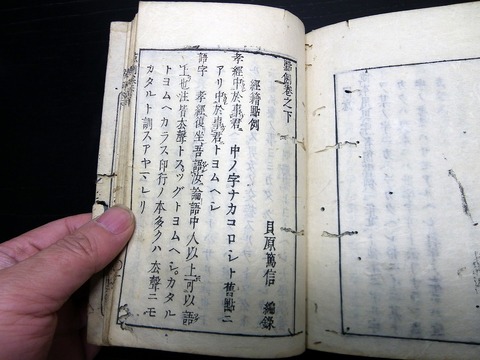 點例卷之下
貝原篤信 編錄
經籍點例
孝經中於事君 中ノ字ナカコロ、シト舊點ニ
アリ中於事君トヨムヘシ
語字 孝經復坐吾語汝論語中人以上可以語
上也注皆去聲トス。ツグトヨムヘシ。カタル
トヨムヘカラス印行ノ本多クハ去聲ニモ
カタルト訓スアヤマレリ